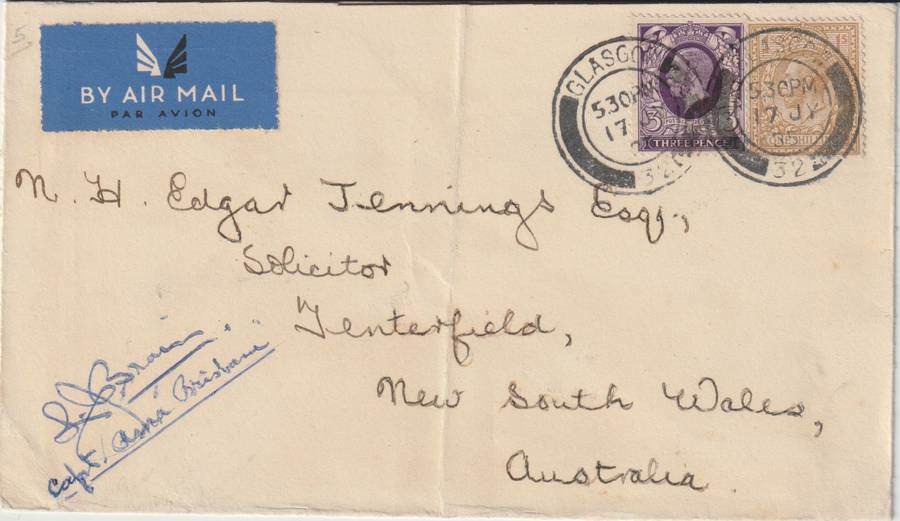 5
BY AIR MAIL
PAR AVION
GLASGOW
5.30PM
17
32
3 3
THREE PENCE
5.30PM
17 JY
32
ONE SHILL
N. H. Edgar Jennings Esq.,
Solicitor
Tenterfield,
New South Wales,
Australia.
Capt. Brisbane